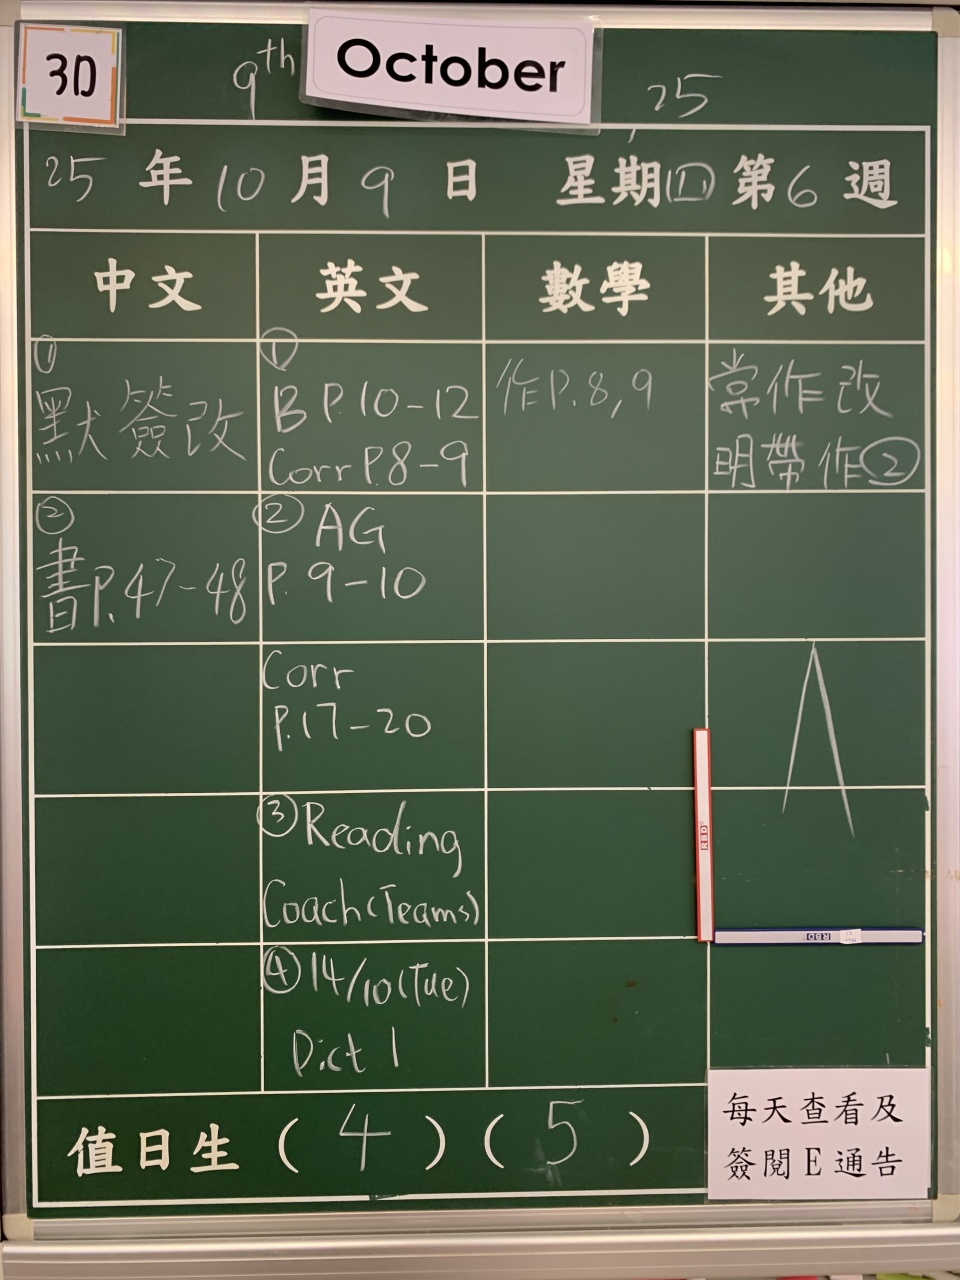 3D
9th October 25
25 年 10 月 9 日 星期四 第 6 週
中文 英文 數學 其他
①
默簽改
①
B P.10-12
Corr P.8-9
作P.8,9
常作改
明帶作②
②
書P.47-48
② AG
P. 9-10
Corr
P.17-20
③ Reading
Coach (Teams)
④ 14/10 (Tue)
Dict 1
值日生 ( 4 ) ( 5 )
每天查看及
簽閱E通告